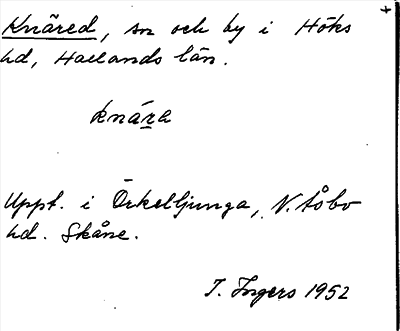 Knäred, sn och by i Höks
hd, Hallands län.
knára
Uppt. i Örkelljunga, N. Åsbo
hd. Skåne.
I. Ingers 1952